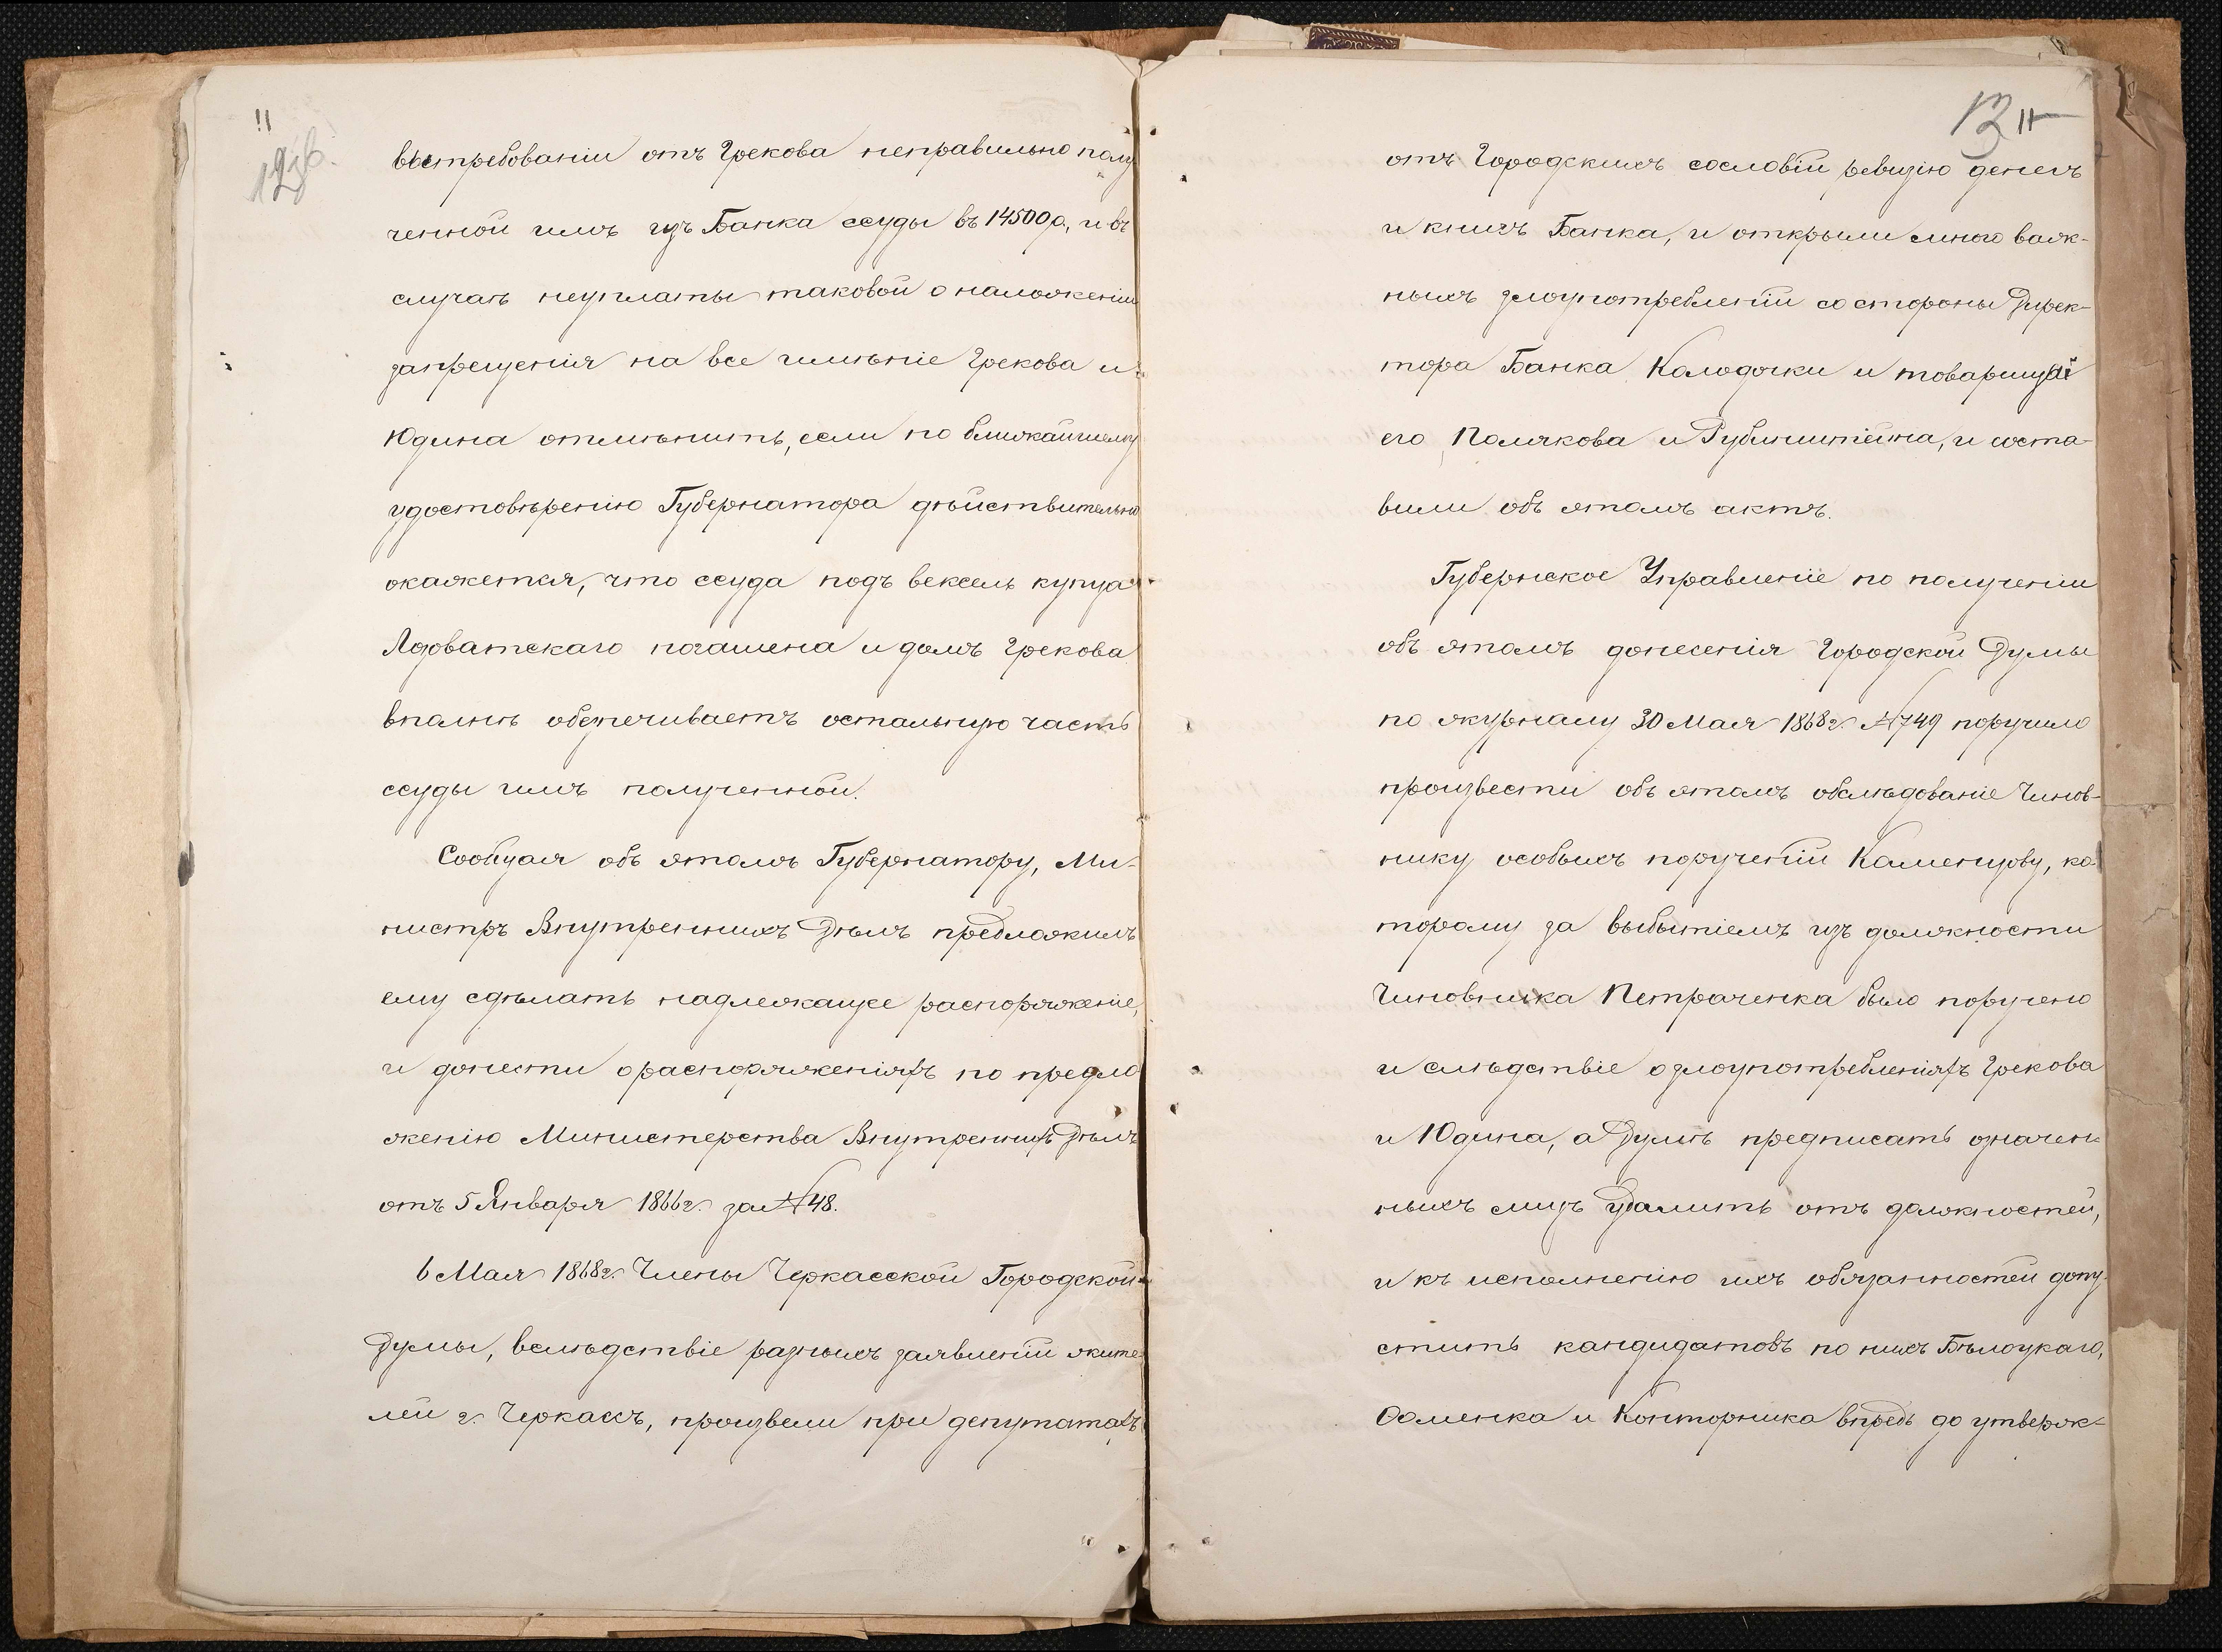 11
12об.
востребованіи отъ Грекова неправильно полу
ченной имъ изъ Банка ссуды въ 14500 р., и въ
случаѣ неуплаты таковой о наложеніи
запрещенія на все имѣніе Грекова и
Юдина отмѣнить, если по ближайшему
удостовѣренію Губернатора дѣйствительно
окажется, что ссуда подъ вексель купца
Лозоватскаго погашена и домъ Грекова
вполнѣ обезпечиваетъ остальную часть
ссуды имъ полученной.
Сообщая объ этомъ Губернатору, Ми-
нистръ Внутреннихъ Дѣлъ предложилъ
ему сдѣлать надлежащее распоряженіе,
и донести о распоряженіяхъ по предло
женію Министерства Внутреннихъ Дѣлъ
отъ 5 Января 1866 г. за № 48.
6 Мая 1868 г. Члены Черкасской Городской
Думы, вслѣдствіе разныхъ заявленій жите-
лей г. Черкассъ, произвели при депутатахъ
13 11
отъ Городскихъ сословій ревизію денегъ
и книгъ Банка, и открыли много важ-
ныхъ злоупотребленій со стороны Дирек-
тора Банка Колодочки и товарищей
его Полякова и Рубинштейна, и соста-
вили объ этомъ актъ.
Губернское Управленіе по полученіи
объ этомъ донесенія Городской Думы
по журналу 30 Мая 1868 г. № 749 поручило
произвести объ этомъ обслѣдованіе Чинов-
нику особыхъ порученій Каменцову, ко-
торому за выбытіемъ изъ должности
Чиновника Петраченка было поручено
и слѣдствіе о злоупотребленіяхъ Грекова
и Юдина, а Думѣ предписать означен-
ныхъ лицъ удалить отъ должностей,
и къ исполненію ихъ обязанностей допу-
стить кандидатовъ по нихъ Бѣлоцкаго,
Фоменка и Конторника впредь до утверж-